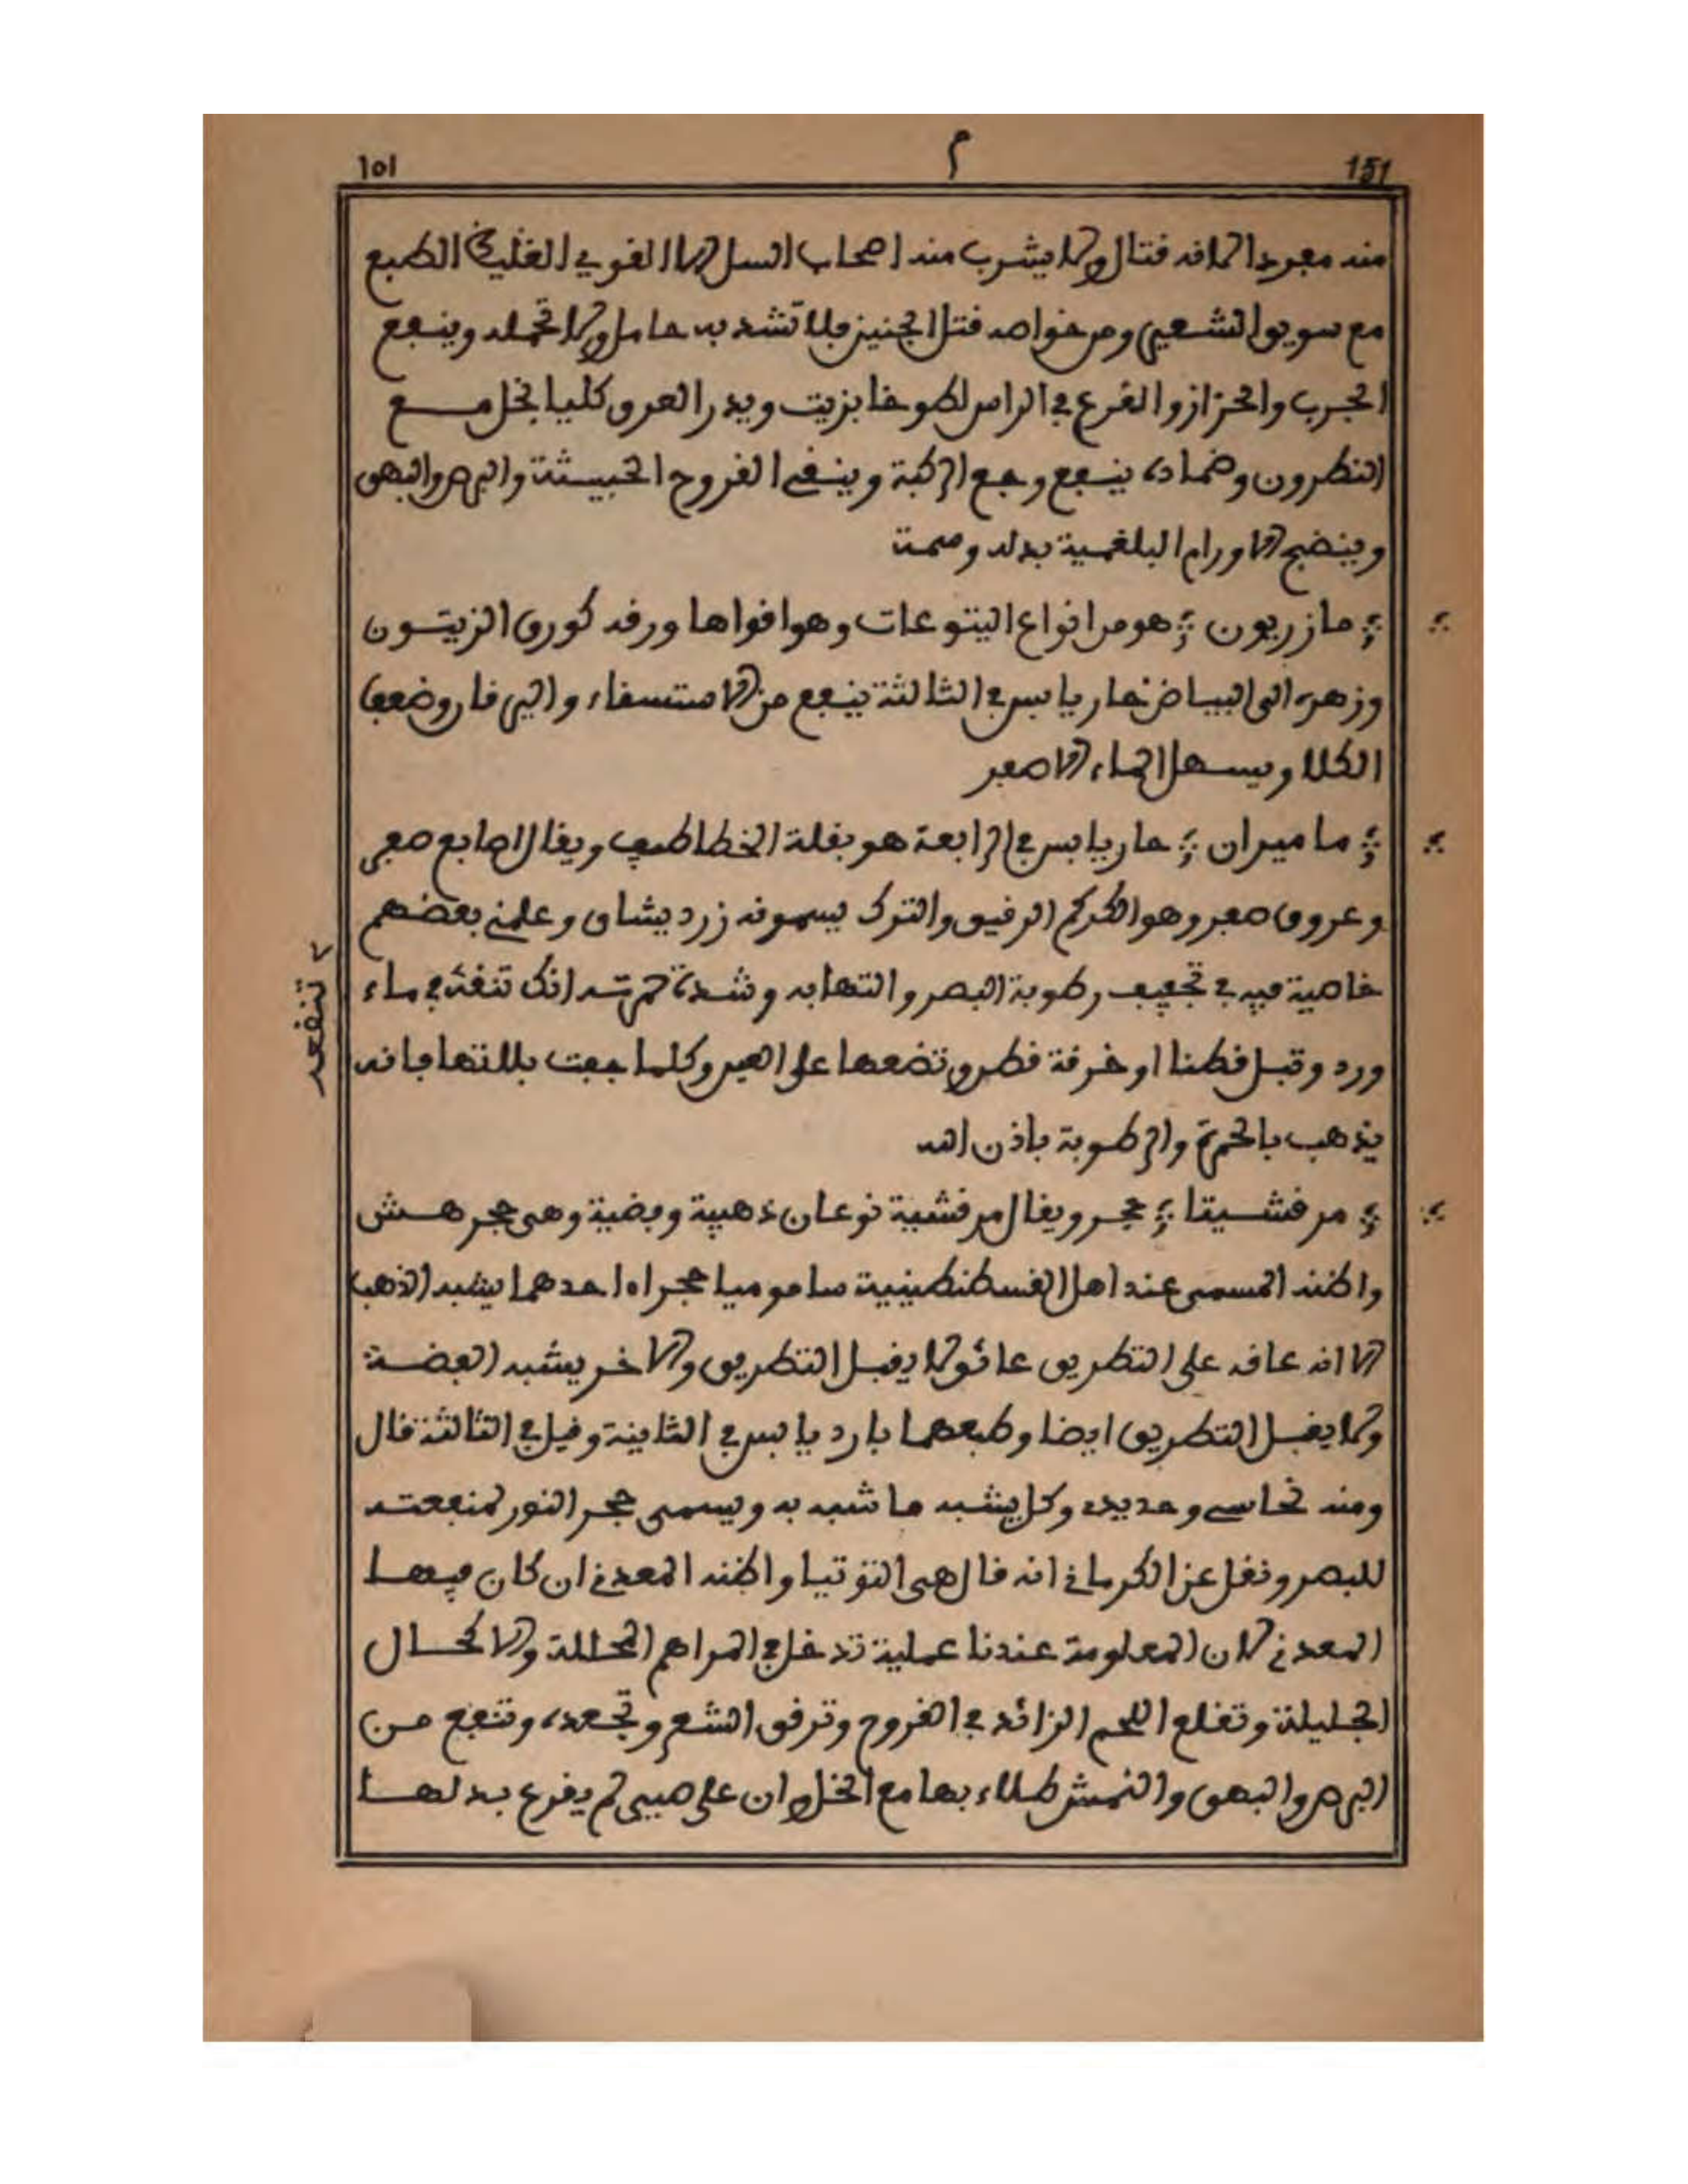 ١٥١ م 151
منه مفردا لانه قتال ولا يشرب منه اصحاب السل الا القوي الغليظ الطبع
مع سويق الشعير ومن خواصه قتل الجنين فلا تشد به حامل ولا تحمله وينفع
الجرب والحزاز والقرع في الراس لطوخا بزيت ويدر العرق كليا بخل مع
النطرون وضماده ينفع وجع الركبة وينقي القروح الخبيثة والبرص والبهق
وينضج الاورام البلغمية بدله وصمة
مازريون هو من انواع اليتوعات وهو اقواها ورقه كورق الزيتون
وزهره الى البياض حار يابس في الثالثة ينفع من الاستسقاء واليرقان وضعف
الكلا ويسهل الماء الاصفر
ماميران حار يابس في الرابعة هو بقلة الخطاطيف ويقال اصابع صفر
وعروق صفر وهو الكركم الرقيق والترك يسمونه زرديشاق وعلمني بعضهم
خاصية فيه في تجفيف رطوبة البصر والتهابه وشدة حمرته انك تنقعه في ماء
ورد وتبل قطنا او خرقة قطن وتضعها على العين وكلما جفت بللتها فانه
يذهب بالحمرة والرطوبة باذن الله
مرقشيتا حجر ويقال مرقشية نوعان ذهبية وفضية وهي حجر هش
واظنه المسمى عند اهل القسطنطينية ساموميا حجراه احدهما يشبه الذهب
الا انه عاقه على التطريق عائق لا يقبل التطريق والاخر يشبه الفضة
ولا يقبل التطريق ايضا وطبعهما بارد يابس في الثانية وقيل في الثالثة قال
ومنه نحاسي وحديدي وكل يشبه ما شبه به ويسمى حجر النور لمنفعته
للبصر ونقل عن الكرماني انه قال هي التوتيا واظنه المعدني ان كان فيها
المعدني لان المعلومة عندنا عملية تدخل في المراهم المحللة والاكحال
الجليلة وتقلع اللحم الزائد في القروح وترقق الشعر وتجعده وتنفع من
البرص والبهق والنمش طلاء بها مع الخل وان على صبي لم يفزع بدلها
تنقعه